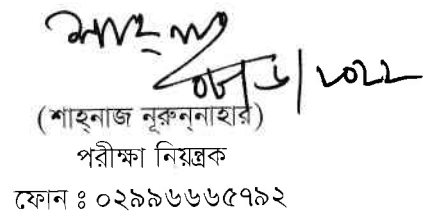 (শাহ্‌নাজ নূরুন্‌নাহার)
পরীক্ষা নিয়ন্ত্রক
ফোন ঃ ০২৯৯৬৬৬৫৭৯২